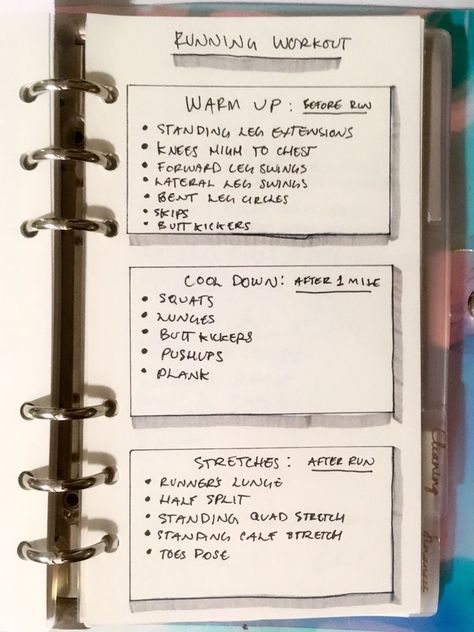 RUNNING WORKOUT
WARM UP: BEFORE RUN
• STANDING LEG EXTENSIONS
• KNEES HIGH TO CHEST
• FORWARD LEG SWINGS
• LATERAL LEG SWINGS
• BENT LEG CIRCLES
• SKIPS
• BUTT KICKERS
COOL DOWN: AFTER 1 MILE
• SQUATS
• LUNGES
• BUTT KICKERS
• PUSHUPS
• PLANK
STRETCHES: AFTER RUN
• RUNNERS LUNGE
• HALF SPLIT
• STANDING QUAD STRETCH
• STANDING CALF STRETCH
• TOES POSE
Cleaning